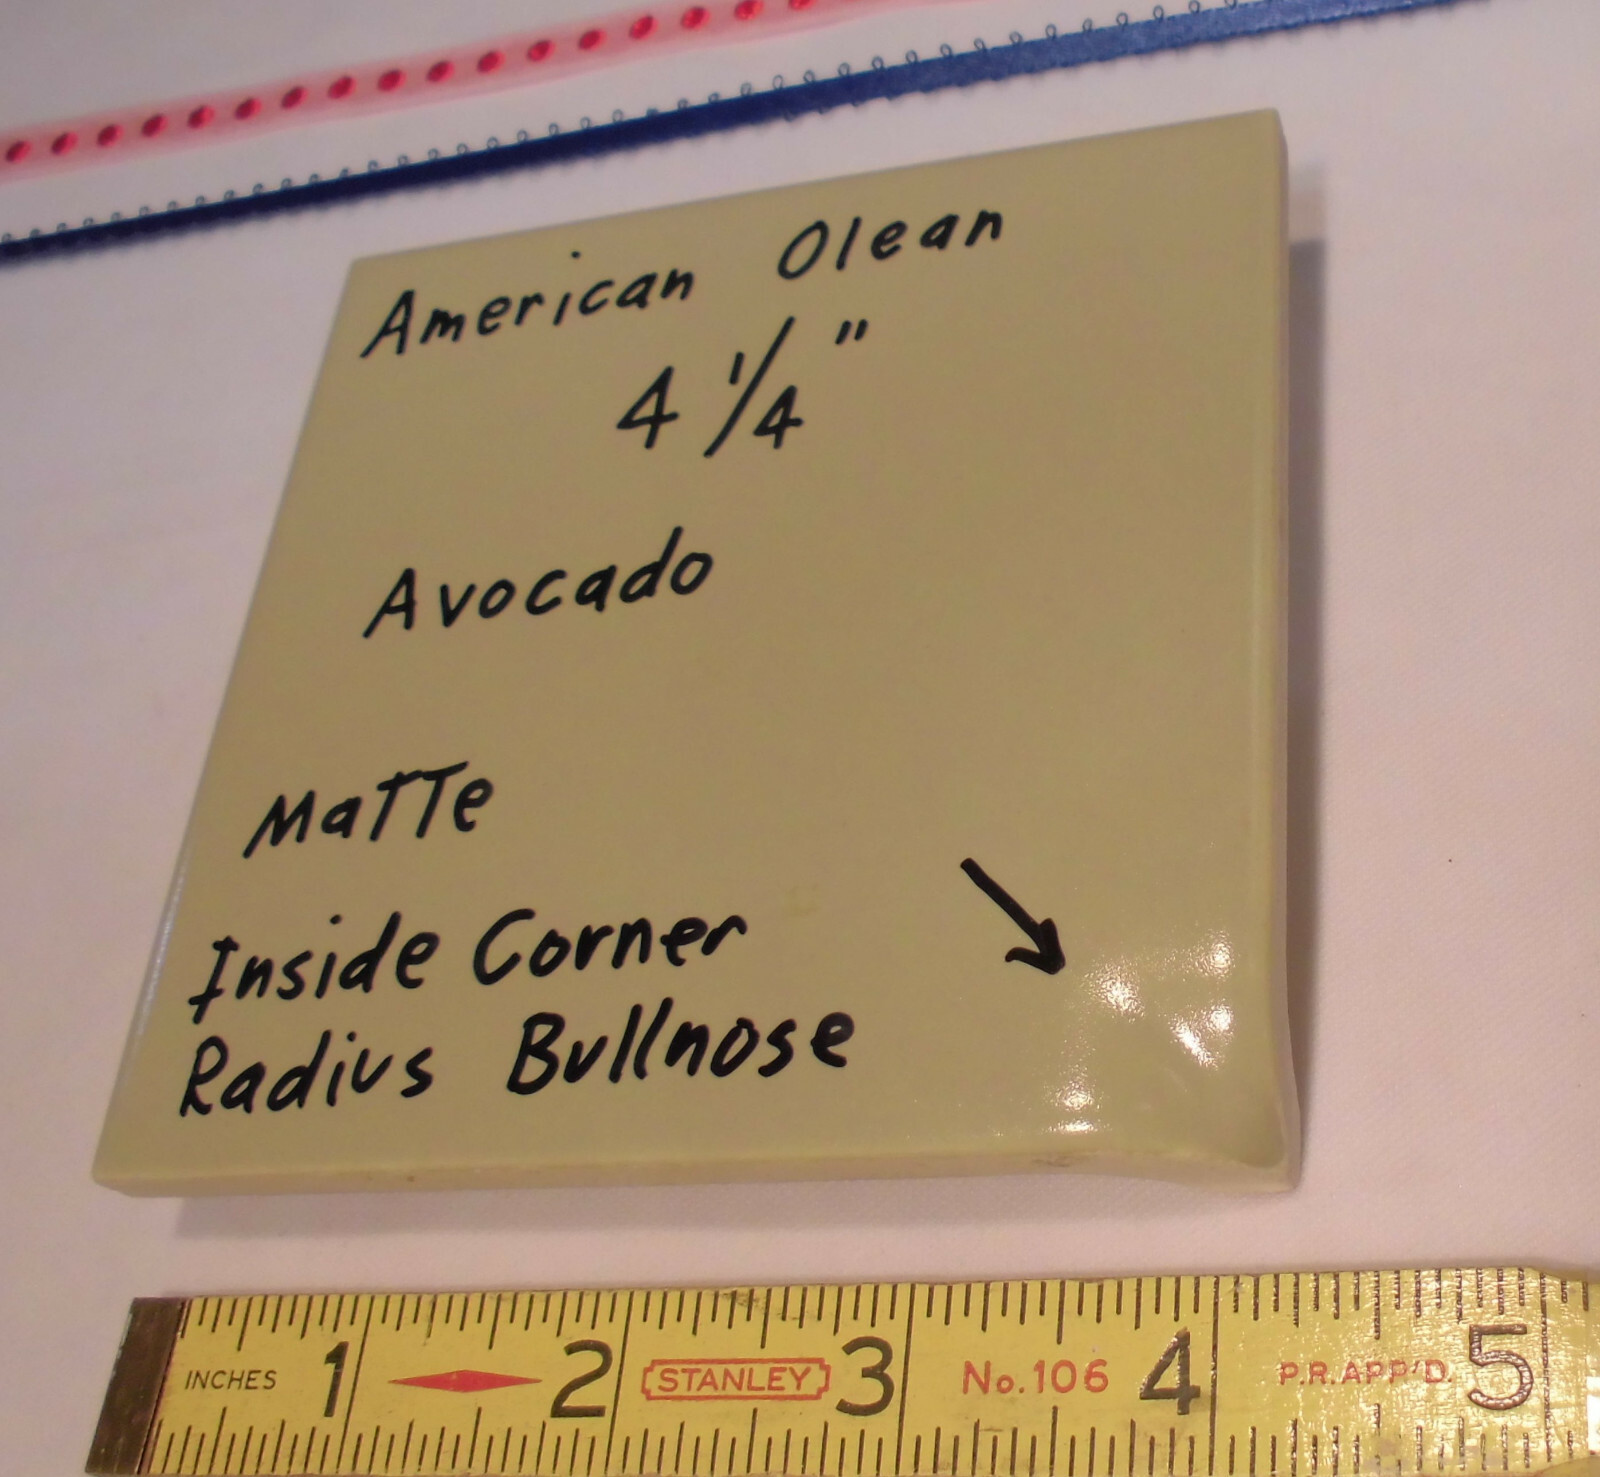 American Olean
4 1/4"
Avocado
Matte
Inside Corner
Radius Bullnose
INCHES 1 2 STANLEY 3 No.106 4 P.R.APP'D. 5